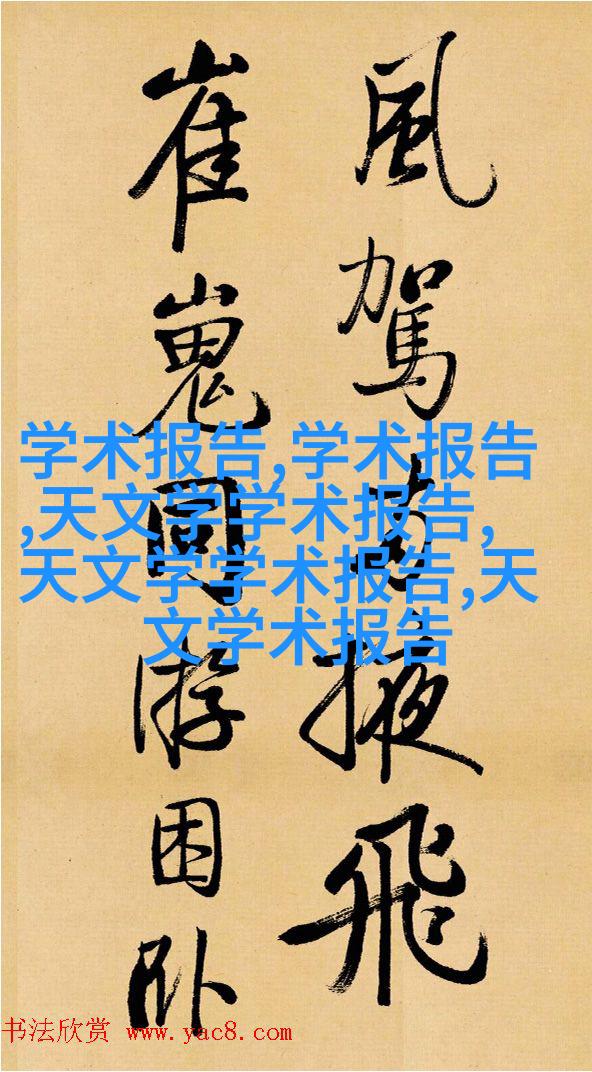 風駕掖飛
崔嵬同游困卧
学术报告,学术报告
,天文学学术报告,
天文学学术报告,天
文学术报告
书法欣赏 www.yac8.com